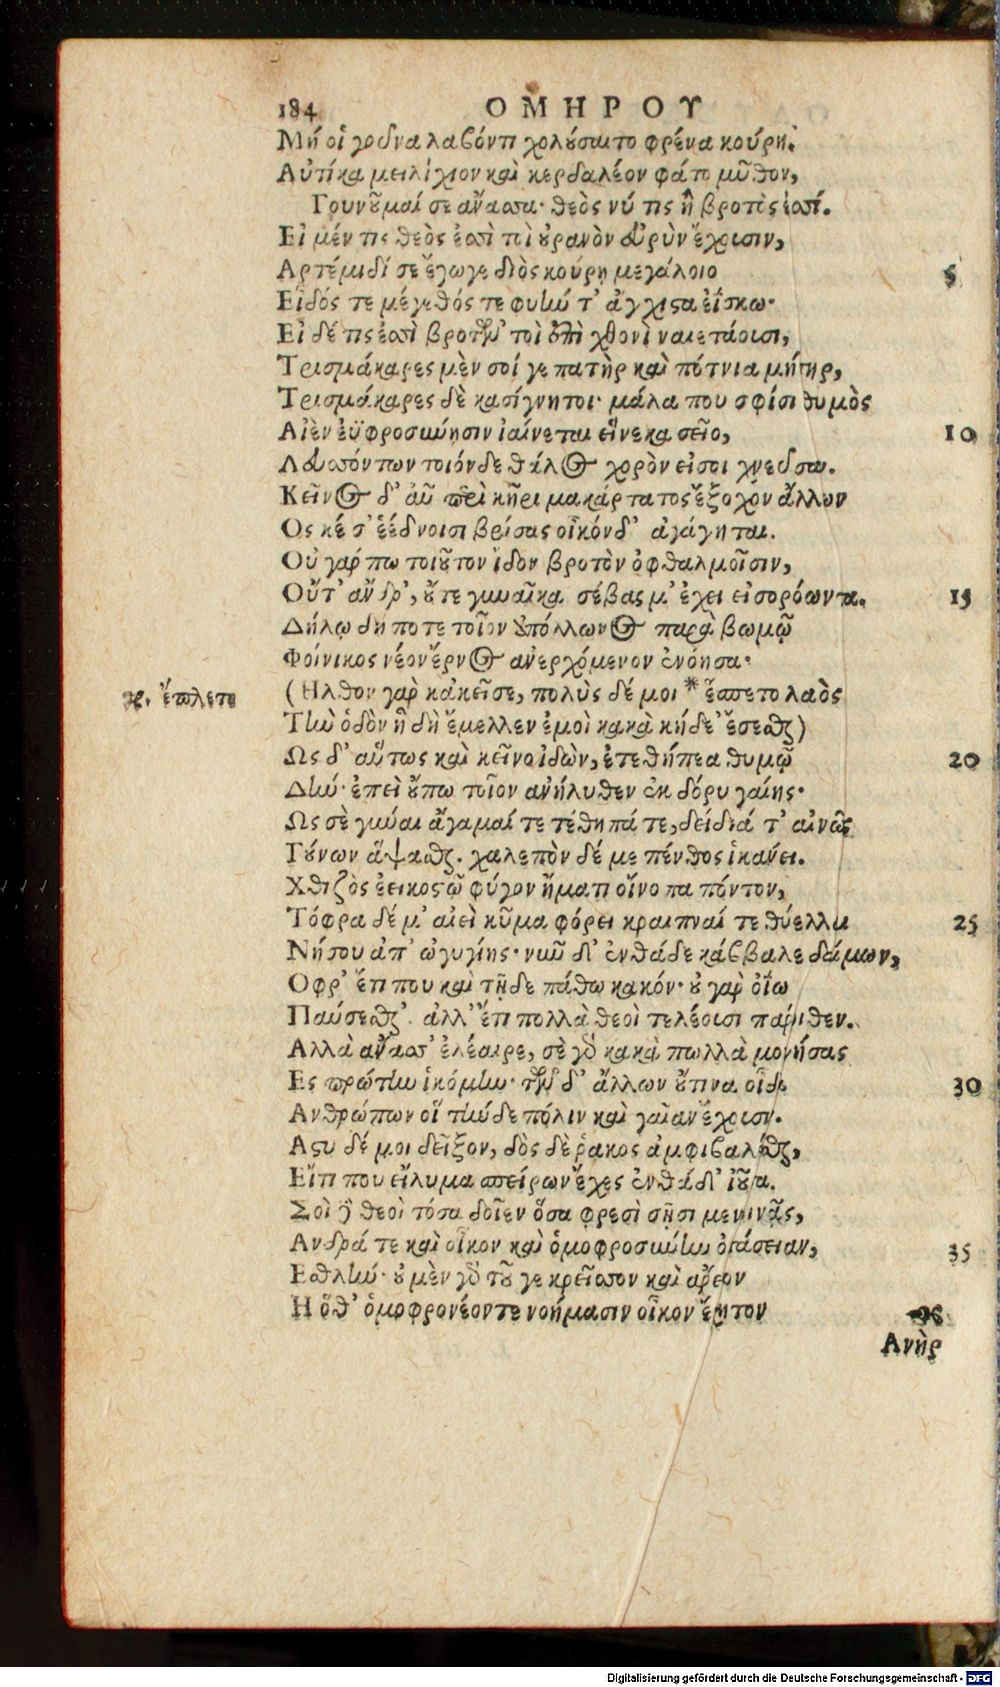 184 ΟΜΗΡΟΥ
Μή οἱ γοῦνα λαβόντι χολώσαιτο φρένα κούρη.
Αὐτίκα μειλίχιον καὶ κερδαλέον φάτο μῦθον,
Γουνοῦμαί σε ἄνασσα· θεὸς νύ τις ἢ βροτός ἐσσί.
Εἰ μέν τις θεὸς ἐσσὶ τοὶ οὐρανὸν εὐρὺν ἔχουσιν,
Αρτέμιδί σε ἔγωγε διὸς κούρῃ μεγάλοιο 5
Εἶδός τε μέγεθός τε φυήν τ' ἄγχιστα ἐΐσκω·
Εἰ δέ τις ἐσσὶ βροτῶν τοὶ ἐπὶ χθονὶ ναιετάουσι,
Τρισμάκαρες μὲν σοί γε πατὴρ καὶ πότνια μήτηρ,
Τρισμάκαρες δὲ κασίγνητοι· μάλα που σφίσι θυμὸς
Αἰὲν ἐϋφροσύνησιν ἰαίνεται εἵνεκα σεῖο, 10
Λευσσόντων τοιόνδε θάλος χορὸν εἰσοιχνεῦσαν.
Κεῖνος δ' αὖ περὶ κῆρι μακάρτατος ἔξοχον ἄλλων
Ος κέ σ' ἐέδνοισι βρίσας οἶκόνδ' ἀγάγηται.
Οὐ γάρ πω τοιοῦτον ἴδον βροτὸν ὀφθαλμοῖσιν,
Οὔτ' ἄνδρ', οὔτε γυναῖκα σέβας μ' ἔχει εἰσορόωντα. 15
Δήλῳ δή ποτε τοῖον ἀπόλλωνος παρὰ βωμῷ
Φοίνικος νέον ἔρνος ἀνερχόμενον ἐνόησα·
γρ. ἕπλετο (Ηλθον γὰρ κἀκεῖσε, πολὺς δέ μοι * ἕσπετο λαὸς
Τὴν ὁδὸν ᾗ δὴ ἔμελλεν ἐμοὶ κακὰ κήδε' ἔσεσθαι)
Ως δ' αὔτως καὶ κεῖνο ἰδὼν, ἐτεθήπεα θυμῷ 20
Δήν· ἐπεὶ οὔπω τοῖον ἀνήλυθεν ἐκ δόρυ γαίης·
Ως σὲ γύναι ἄγαμαί τε τέθηπά τε, δείδιά τ' αἰνῶς
Γούνων ἅψασθαι. χαλεπὸν δέ με πένθος ἱκάνει.
Χθιζὸς ἐεικοστῷ φύγον ἤματι οἴνοπα πόντον,
Τόφρα δέ μ' αἰεὶ κῦμα φόρει κραιπναί τε θύελλαι 25
Νήσου ἀπ' ὠγυγίης· νῦν δ' ἐνθάδε κάββαλε δαίμων,
Οφρ' ἔτι που καὶ τῇδε πάθω κακόν· οὐ γὰρ ὀΐω
Παύσεσθ'. ἀλλ' ἔτι πολλὰ θεοὶ τελέουσι πάροιθεν.
Αλλὰ ἄνασσ' ἐλέαιρε, σὲ γὰρ κακὰ πολλὰ μογήσας
Ες πρώτην ἱκόμην· τῶν δ' ἄλλων οὔτινα οἶδα 30
Ανθρώπων οἳ τήνδε πόλιν καὶ γαῖαν ἔχουσιν.
Αστυ δέ μοι δεῖξον, δὸς δὲ ῥάκος ἀμφιβαλέσθαι,
Εἴ τί που εἴλυμα σπείρων ἔχες ἐνθάδ' ἰοῦσα.
Σοὶ δὲ θεοὶ τόσα δοῖεν ὅσα φρεσὶ σῇσι μενοινᾷς,
Ανδρά τε καὶ οἶκον καὶ ὁμοφροσύνην ὀπάσειαν, 35
Εσθλήν· οὐ μὲν γὰρ τοῦ γε κρεῖσσον καὶ ἄρειον
Η ὅθ' ὁμοφρονέοντε νοήμασιν οἶκον ἔχητον
Ανὴρ
Digitalisierung gefördert durch die Deutsche Forschungsgemeinschaft - DFG